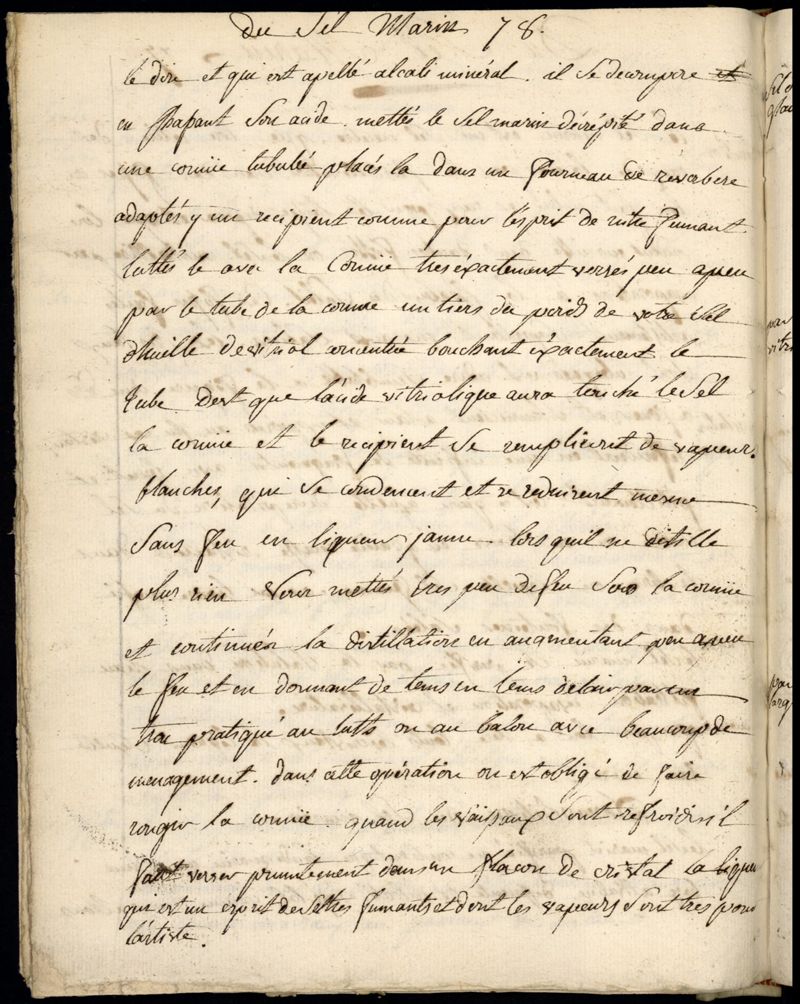 du Sel Marin 78.
le dire et qui est apellé alcali minéral. il se décompose
en passant son acide. mettés le Sel marin décrépité dans
une cornüe tubulée placés la dans un fourneau de reverbere
adaptés y un recipient comme pour l'esprit de nitre fumant.
luttés le avec la Cornüe tres éxactement versés peu apeu
par le tube de la cornue un tiers du poids de votre Sel
d'huille de vitriol concentrée bouchant éxactement le
tube des que l'acide vitriolique aura touché le Sel
la cornüe et le recipient se remplissent de vapeurs
blanches, qui se condensent et se reduisent mesme
sans feu en liqueur jaune. lors quil ne distille
plus rien vous mettés tres peu de feu sous la cornüe
et continués la distillation en augmentant peu apeu
le feu et en donnant de tems en tems de l'air par un
trou pratiqué au lutt ou au balon avec beaucoup de
menagement. dans cette opération on est obligé de faire
rougir la cornüe. quand les vaisseaux sont refroidis il
faut verser promtement dans un flacon de cristal la lique
qui est un esprit de Sel tres fumant et dont les vapeurs sont tres pour
l'artiste.